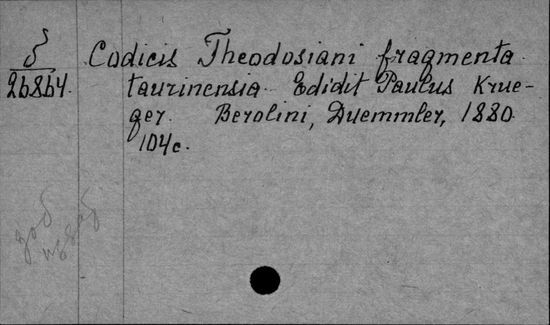 δ
26864.
Codicis Theodosiani fragmenta
taurinensia. Edidit Paulus Krue-
ger. Berolini, Duemmler, 1880.
104c.